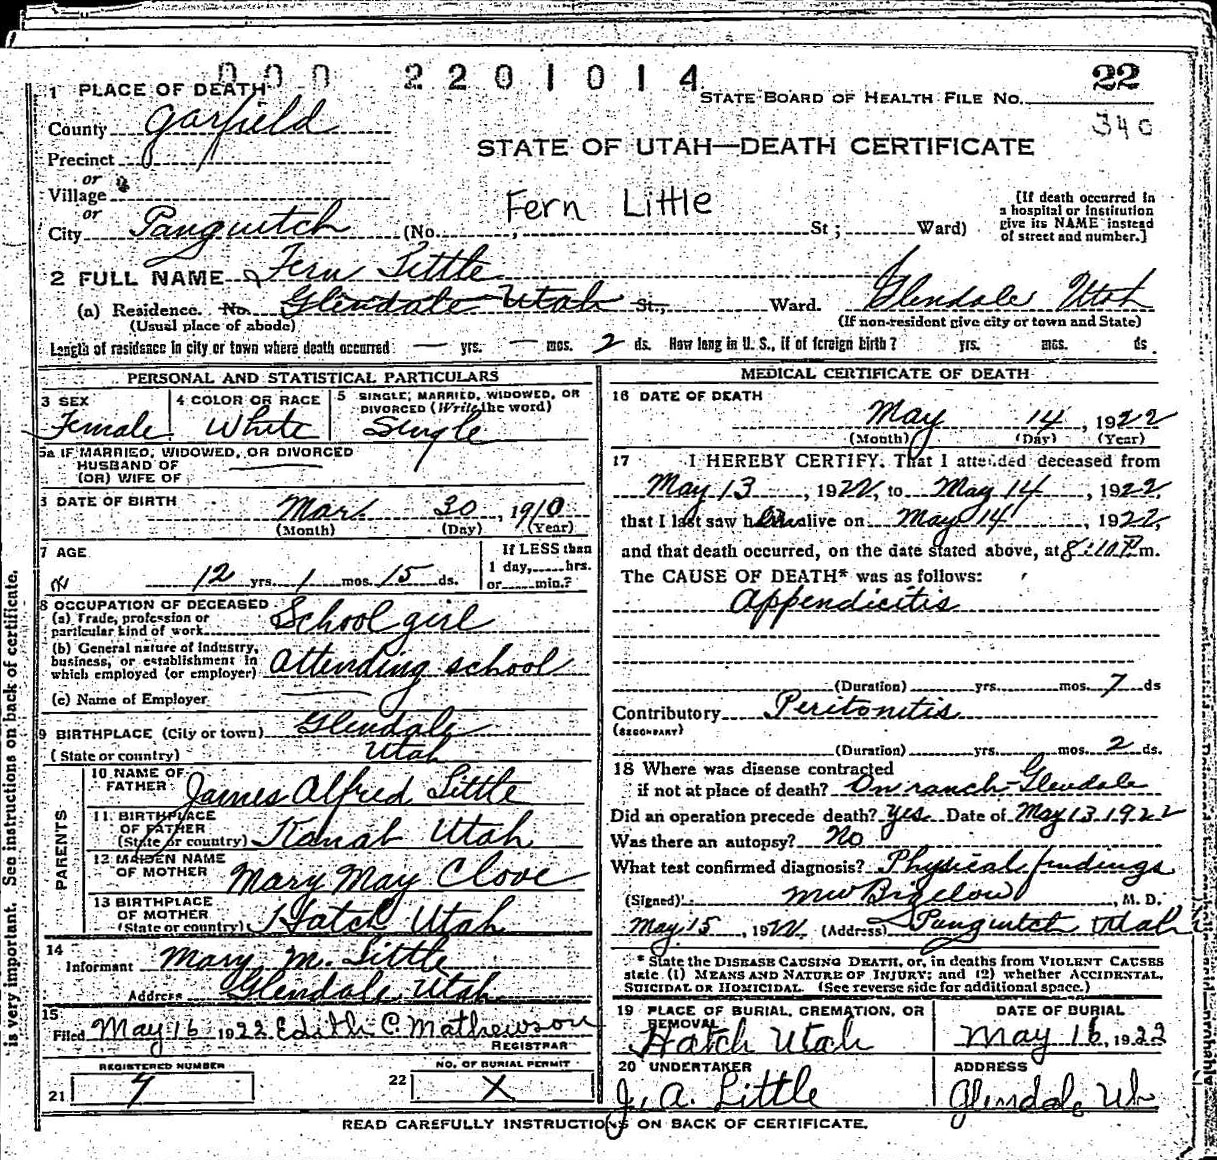 000 2201014
22
1 PLACE OF DEATH
STATE BOARD OF HEALTH FILE NO.
340
County Garfield
STATE OF UTAH—DEATH CERTIFICATE
Precinct
or
Village
or
City Panguitch (No. , St; Ward)
Fern Little
[If death occurred in a hospital or institution give its NAME instead of street and number.]
2 FULL NAME Fern Little
(a) Residence. No. Glendale Utah St., Ward. Glendale Utah
(Usual place of abode) (If non-resident give city or town and State)
Length of residence in city or town where death occurred — yrs. — mos. 2 ds. How long in U. S., if of foreign birth? yrs. mos. ds.
PERSONAL AND STATISTICAL PARTICULARS
3 SEX Female
4 COLOR OR RACE White
5 SINGLE, MARRIED, WIDOWED, OR DIVORCED (Write the word) Single
5a IF MARRIED, WIDOWED, OR DIVORCED
HUSBAND OF
(OR) WIFE OF
DATE OF BIRTH Mar. 30, 1910
(Month) (Day) (Year)
7 AGE
12 yrs. 1 mos. 15 ds.
If LESS than
1 day, hrs.
or min.?
8 OCCUPATION OF DECEASED
(a) Trade, profession or
particular kind of work School girl
(b) General nature of industry,
business, or establishment in
which employed (or employer) Attending school
(c) Name of Employer
9 BIRTHPLACE (City or town) Glendale
(State or country) Utah
PARENTS
10 NAME OF
FATHER James Alfred Little
11 BIRTHPLACE
OF FATHER
(State or country) Kanab Utah
12 MAIDEN NAME
OF MOTHER Mary May Clove
13 BIRTHPLACE
OF MOTHER
(State or country) Hatch Utah
14
Informant Mary M. Little
Address Glendale Utah
15
Filed May 16 1922 Edith C. Mathewson
REGISTRAR
REGISTERED NUMBER
21 7
NO. OF BURIAL PERMIT
22 X
MEDICAL CERTIFICATE OF DEATH
16 DATE OF DEATH
May 14, 1922
(Month) (Day) (Year)
17 I HEREBY CERTIFY, That I attended deceased from
May 13, 1922, to May 14, 1922,
that I last saw her alive on May 14, 1922,
and that death occurred, on the date stated above, at 8:10 P.m.
The CAUSE OF DEATH* was as follows:
Appendicitis
(Duration) yrs. mos. 7 ds
Contributory Peritonitis
(SECONDARY)
(Duration) yrs. mos. 2 ds.
18 Where was disease contracted
if not at place of death? On ranch-Glendale
Did an operation precede death? Yes. Date of May 13 1922
Was there an autopsy? No
What test confirmed diagnosis? Physical findings
(Signed) MW Bigelow, M. D.
May 15, 1922 (Address) Panguitch Utah
* State the DISEASE CAUSING DEATH, or, in deaths from VIOLENT CAUSES
state (1) MEANS AND NATURE OF INJURY; and (2) whether ACCIDENTAL,
SUICIDAL OR HOMICIDAL. (See reverse side for additional space.)
19 PLACE OF BURIAL, CREMATION, OR
REMOVAL
Hatch Utah
DATE OF BURIAL
May 16, 1922
20 UNDERTAKER
J. A. Little
ADDRESS
Glendale Ut
READ CAREFULLY INSTRUCTIONS ON BACK OF CERTIFICATE.
is very important. See instructions on back of certificate.